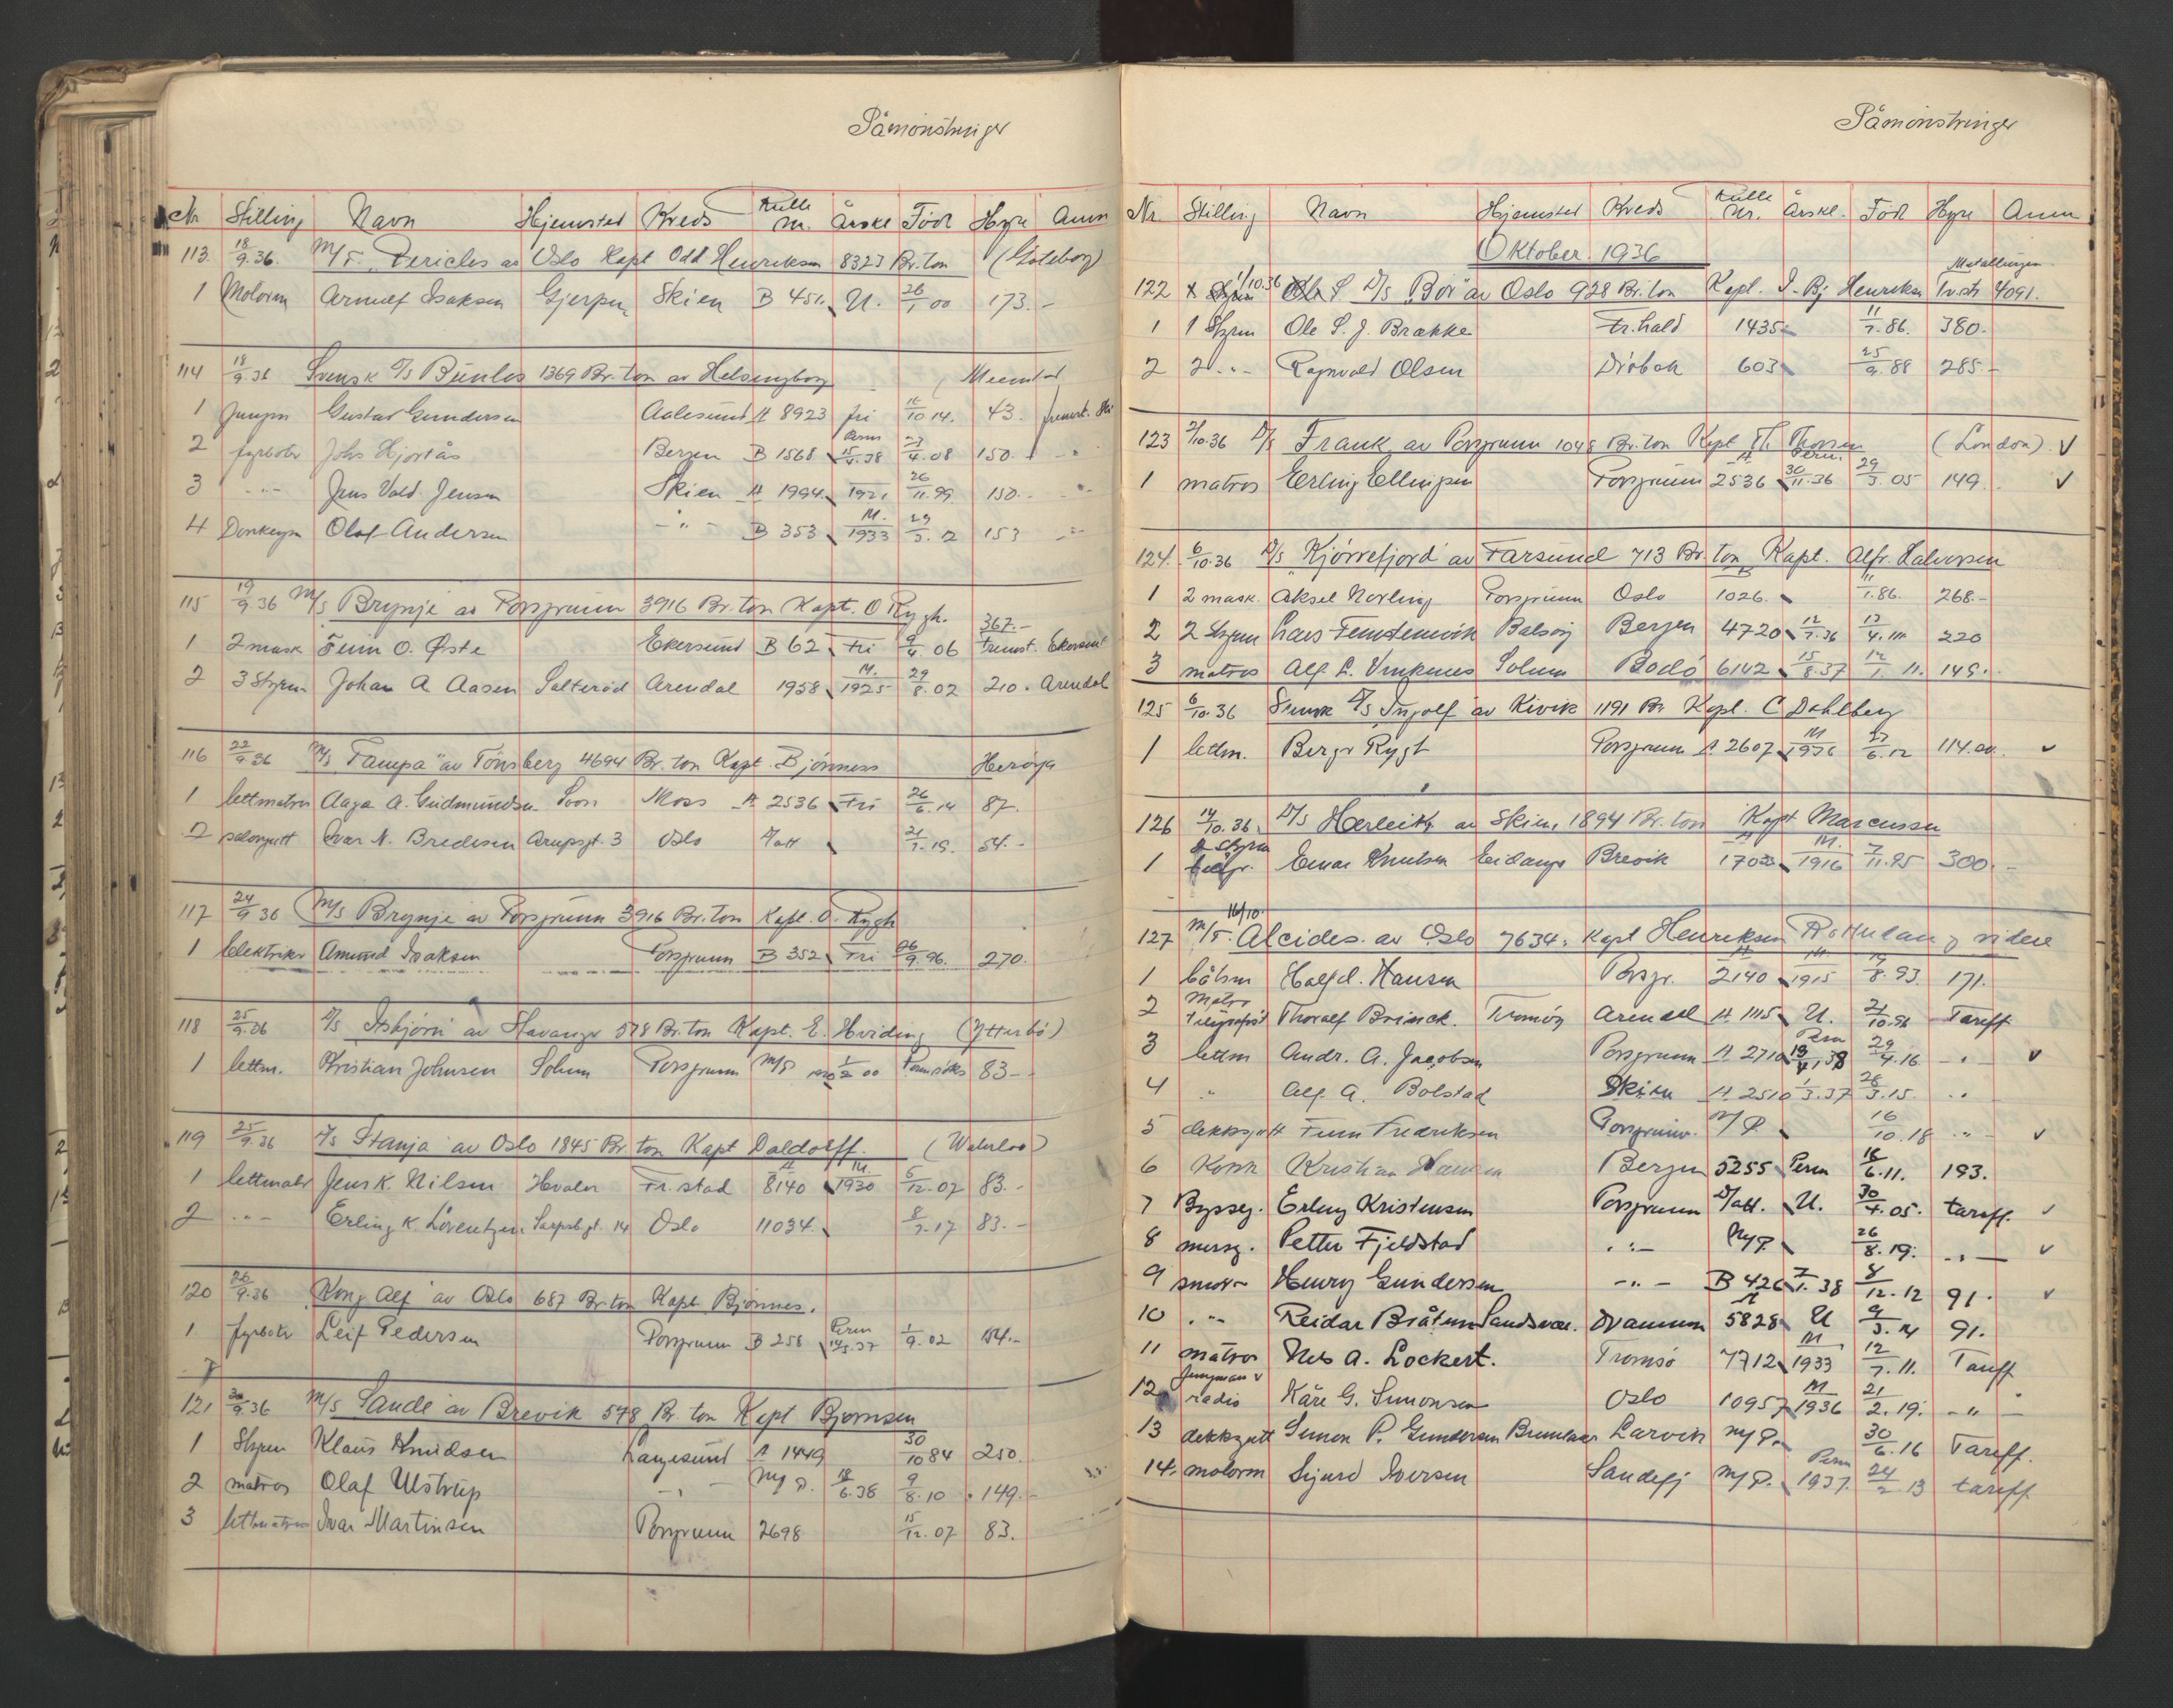 Påmönstringer
Nr. Stilling Navn Hjemsted Kreds Rulle nr. Årskl Född Hyre Anm
113. 18/9.36. M/T. Pericles av Oslo Kapt Odd Henriksen 8323 Br.ton (Göteborg)
1 Motorm Arnulf Isaksen Gjerpen Skien B 451. U. 26/1 00 173.-
114 18/9.36 Svensk D/S 1369 Br.ton av Helsingborg
1 Jungm Gustav Gundersen Aalesund A 8923 fri 10 14. 43.
2 fyrböter Johs Hjortås Bergen B 1568 15/5.38 23/4.08 150.-
3 -"- Jens Vald. Jensen Skien A 1994 1921 26/11.99 150.- -"-
4 Donkeym Olaf Andersen -"- B 353 M. 1933 29/3.12 153 -"-
115 19/9.36 M/S Brynje av Porsgrunn 3916 Br.ton Kapt. O Rygh.
1 2 mask Finn O. Øste Ekersund B 62 Fri 9/4. 06 367.- Ekersund
2 3 Styrm Johan A Aasen Salteröd Arendal 1958 M. 1925 29/8.02 210. Arendal
116 22/9 36 M/S "Tampa" av Tönsberg 4694 Br.ton Kapt. Björnness Heröya
1 lettmatros Aage A. Gudmundsen Soon Moss A 2536 Fri 26/6.14 87.
2 salongutt Ivar N. Bredesen Arupsgt. 3 Oslo 21/7.19. 54.-
117 24/9 36 M/S Brynje av Porsgrunn 3916 Br.ton Kapt. O. Rygh
1 Elektriker Amund Isaksen Porsgrunn B 352 Fri 26/9.96. 270.
118 25/9.36 D/S Asbjörn av Stavanger 578 Br.ton Kapt. E. Hviding (Ytterbö)
1 lettm. Kristian Johnsen Solum Porsgrunn M/P 1/2 00 83-
119 25/9.36 D/S Stanja av Oslo 1845 Br ton Kapt Daldorff. (Waterloo)
1 lettmatr Jens K. Nilsen Hvaler Fr.stad A 8140 M. 1930 5/12.07 83.-
2 -"- Erling K. Lorentzen Sarpsbgt. 14 Oslo 11034 8/7.17 83.-
120 26/9.36 Kong Alf av Oslo 687 Br.ton Kapt Björnnes.
1 fyrböter Leif Pedersen Porsgrunn B 258 Perm 1/9.02 154.-
121 30/9.36 M/S Sande av Brevik 578 Br.ton Kapt Bjornsen
1 Styrm Klaus Knudsen Langesund A 1449 30/10 84 250.
2 matros Olaf Ulstrup -"- M/P. 18/6.38 9/8.10 149.-
3 lettmatros Ivar Martinsen Porsgrunn 2698 15/12.07 83.
Påmönstringer
Nr. Stilling Navn Hjemsted Kreds Rulle nr. Årskl. Född Hyre Anm
Oktober 1936
122 1/10.36 D/S "Bör" av Oslo 928 Br.ton Kapt. I. Bj Henriksen 4091.
1 1 Styrm Ole S. J. Brække Fr.hald 1435 11/7.86. 380.-
2 2 -"- Ragnvald Olsen Dröbak 603 25/9.88 285.-
123 2/10.36 D/S Frank av Porsgrunn 1048 Br.ton Kapt Th. Thorsen (London) V
1 matros Erling Ellingsen Porsgrunn A 2536 Perm. 30/11.36 29/3.05 149. V
124. 6/10.36 D/S "Kjörrefjord" av Farsund 713 Br.ton Kapt. Alfr. Halvorsen
1 2 mask. Aksel Norling Porsgrunn Oslo 1026. 11/1.86. 268.-
2 2 Styrm Bergen 4720 12/7.36 220
3 matros Solum Bodö 6142 15/8.37 12/1 11. 149.
125 6/10.36 Svensk D/S Ingolf av Kivik 1191 Br. Kapt. C Dahlberg
1 lettm. Birger Rygh Porsgrunn A 2607 M 1936 6.12 114.00
126 14/10.36. D/S Herleik av Skien, 1894 Br.ton Kapt Marcussen
1 2 Styrm Einar Knutsen Eidanger Brevik A M. 1916 7/11.95 300.-
127 16/10. M/T. Alcides. av Oslo 7634. Kapt Henriksen
1 båtsm Halfd. Hansen Porsgr. A 2140 M. 1915 19/8.93. 171.
2 Matr Telegrafist Thoralf Brinck. Tromöy Arendal A 1115 U. 21/10.96 Tariff
3 lettm Andr. A. Jacobsen Porsgrunn A 2710 Perm 19/4.38 29/4.16 -"- V
4 " Alf A. Bolstad Skien A 2510 1/3.37 28/3.15. -"-
5 dekksgutt Finn Fredriksen Porsgrunn. M/P. 16/10.18 -"- V
6 Kokk Kristian Hansen Bergen 5255 Perm 18/6.11. 193.
7 Byssg. Erling Kristensen Porsgrunn U. 30/4.05. tariff. V
8 messg. Petter Fjeldstad -"- M/P. 26/8.19. -"- V
9 smörer Henry Gundersen -"- B 426 7/1.38 8/12.12 91. V
10 -"- Reidar Bråten Sandsvær. Drammen A 5828 U 9/3.14 91.
11 matros Nils A. Lockert. Tromsö 7712 M 1933 12/7.11. Tariff
12 Jungman v radio Kåre G. Simonsen Oslo 10957 M 1936 21/2.19. -"-
13 dekksgutt Simon P. Gundersen Brunlanes Larvik M/P. 30/6.16 Tariff.
14. motorm Sigurd Iversen Sandefj M/P. Perm 1937. 24/2 13 tariff